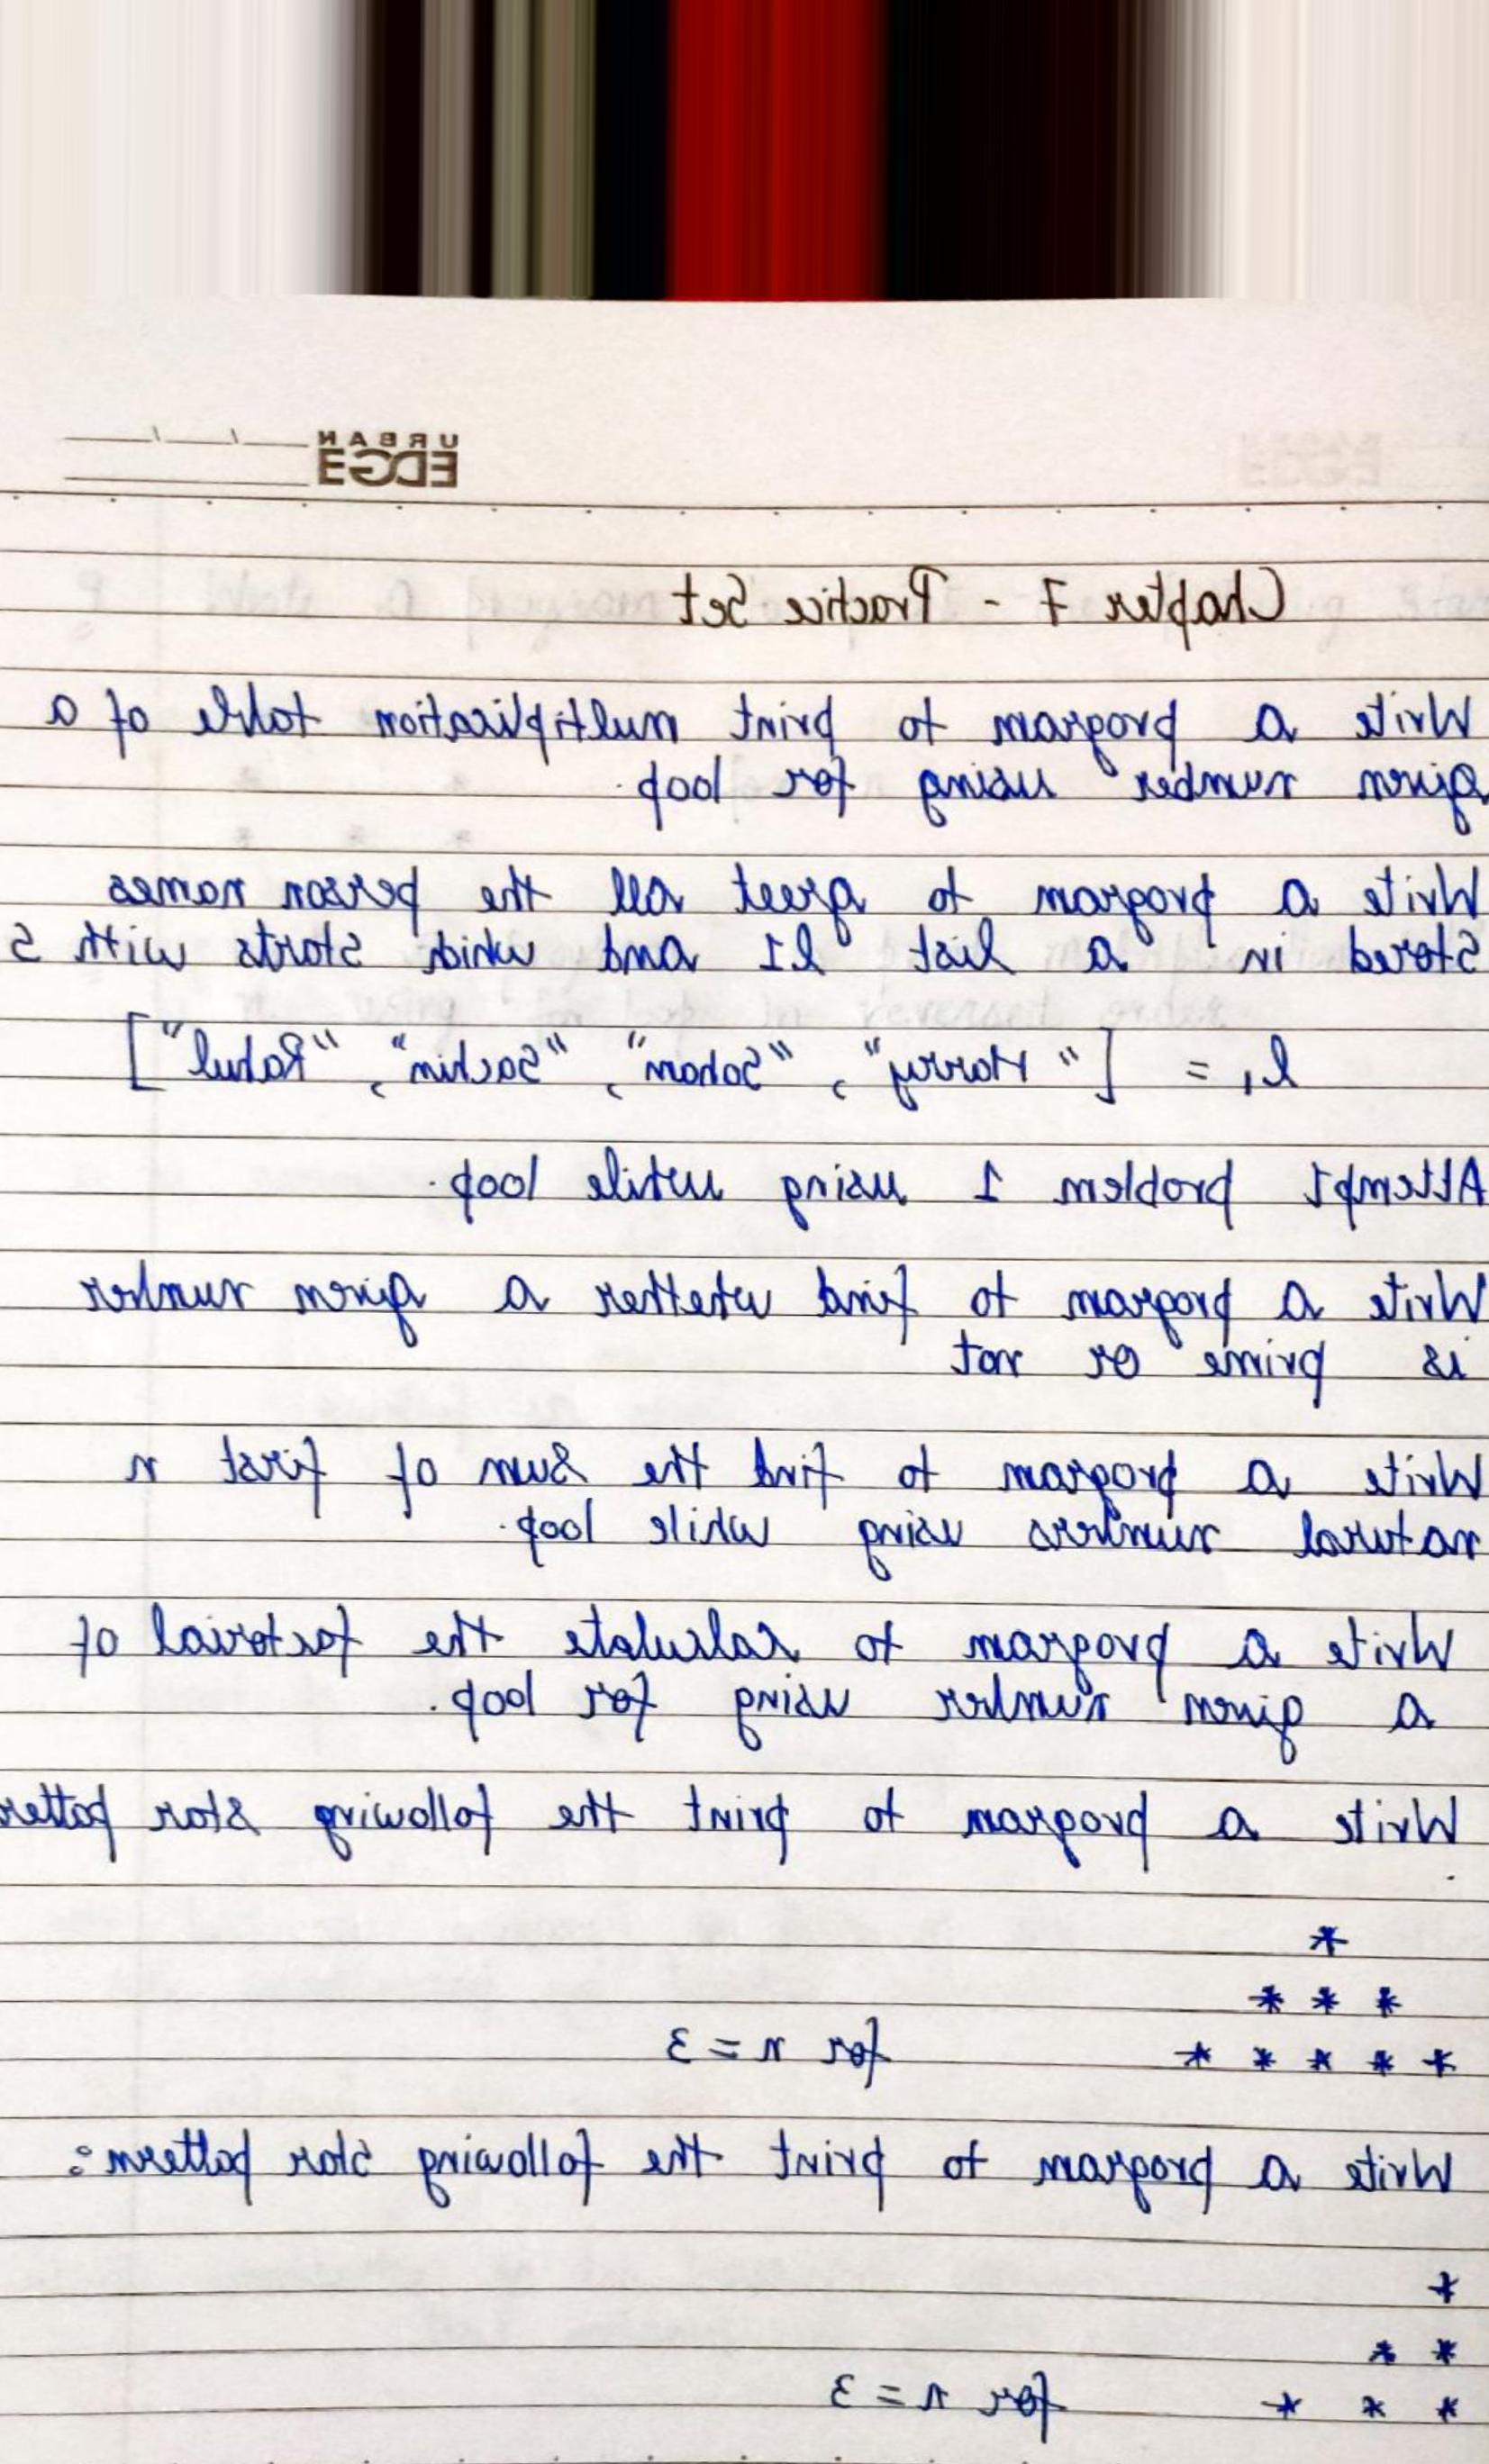 URBAN
EDGE
Chapter 7 - Practice Set
Write a program to print multiplication table of a
given number using for loop.
Write a program to greet all the person names
stored in a list l1 and which starts with S
l1 = ["Harry", "Soham", "Sachin", "Rahul"]
Attempt problem 1 using while loop.
Write a program to find whether a given number
is prime or not
Write a program to find the sum of first n
natural numbers using while loop.
Write a program to calculate the factorial of
a given number using for loop.
Write a program to print the following star patter
*
* * *
* * * * * for n = 3
Write a program to print the following star pattern:
*
* *
* * * for n = 3